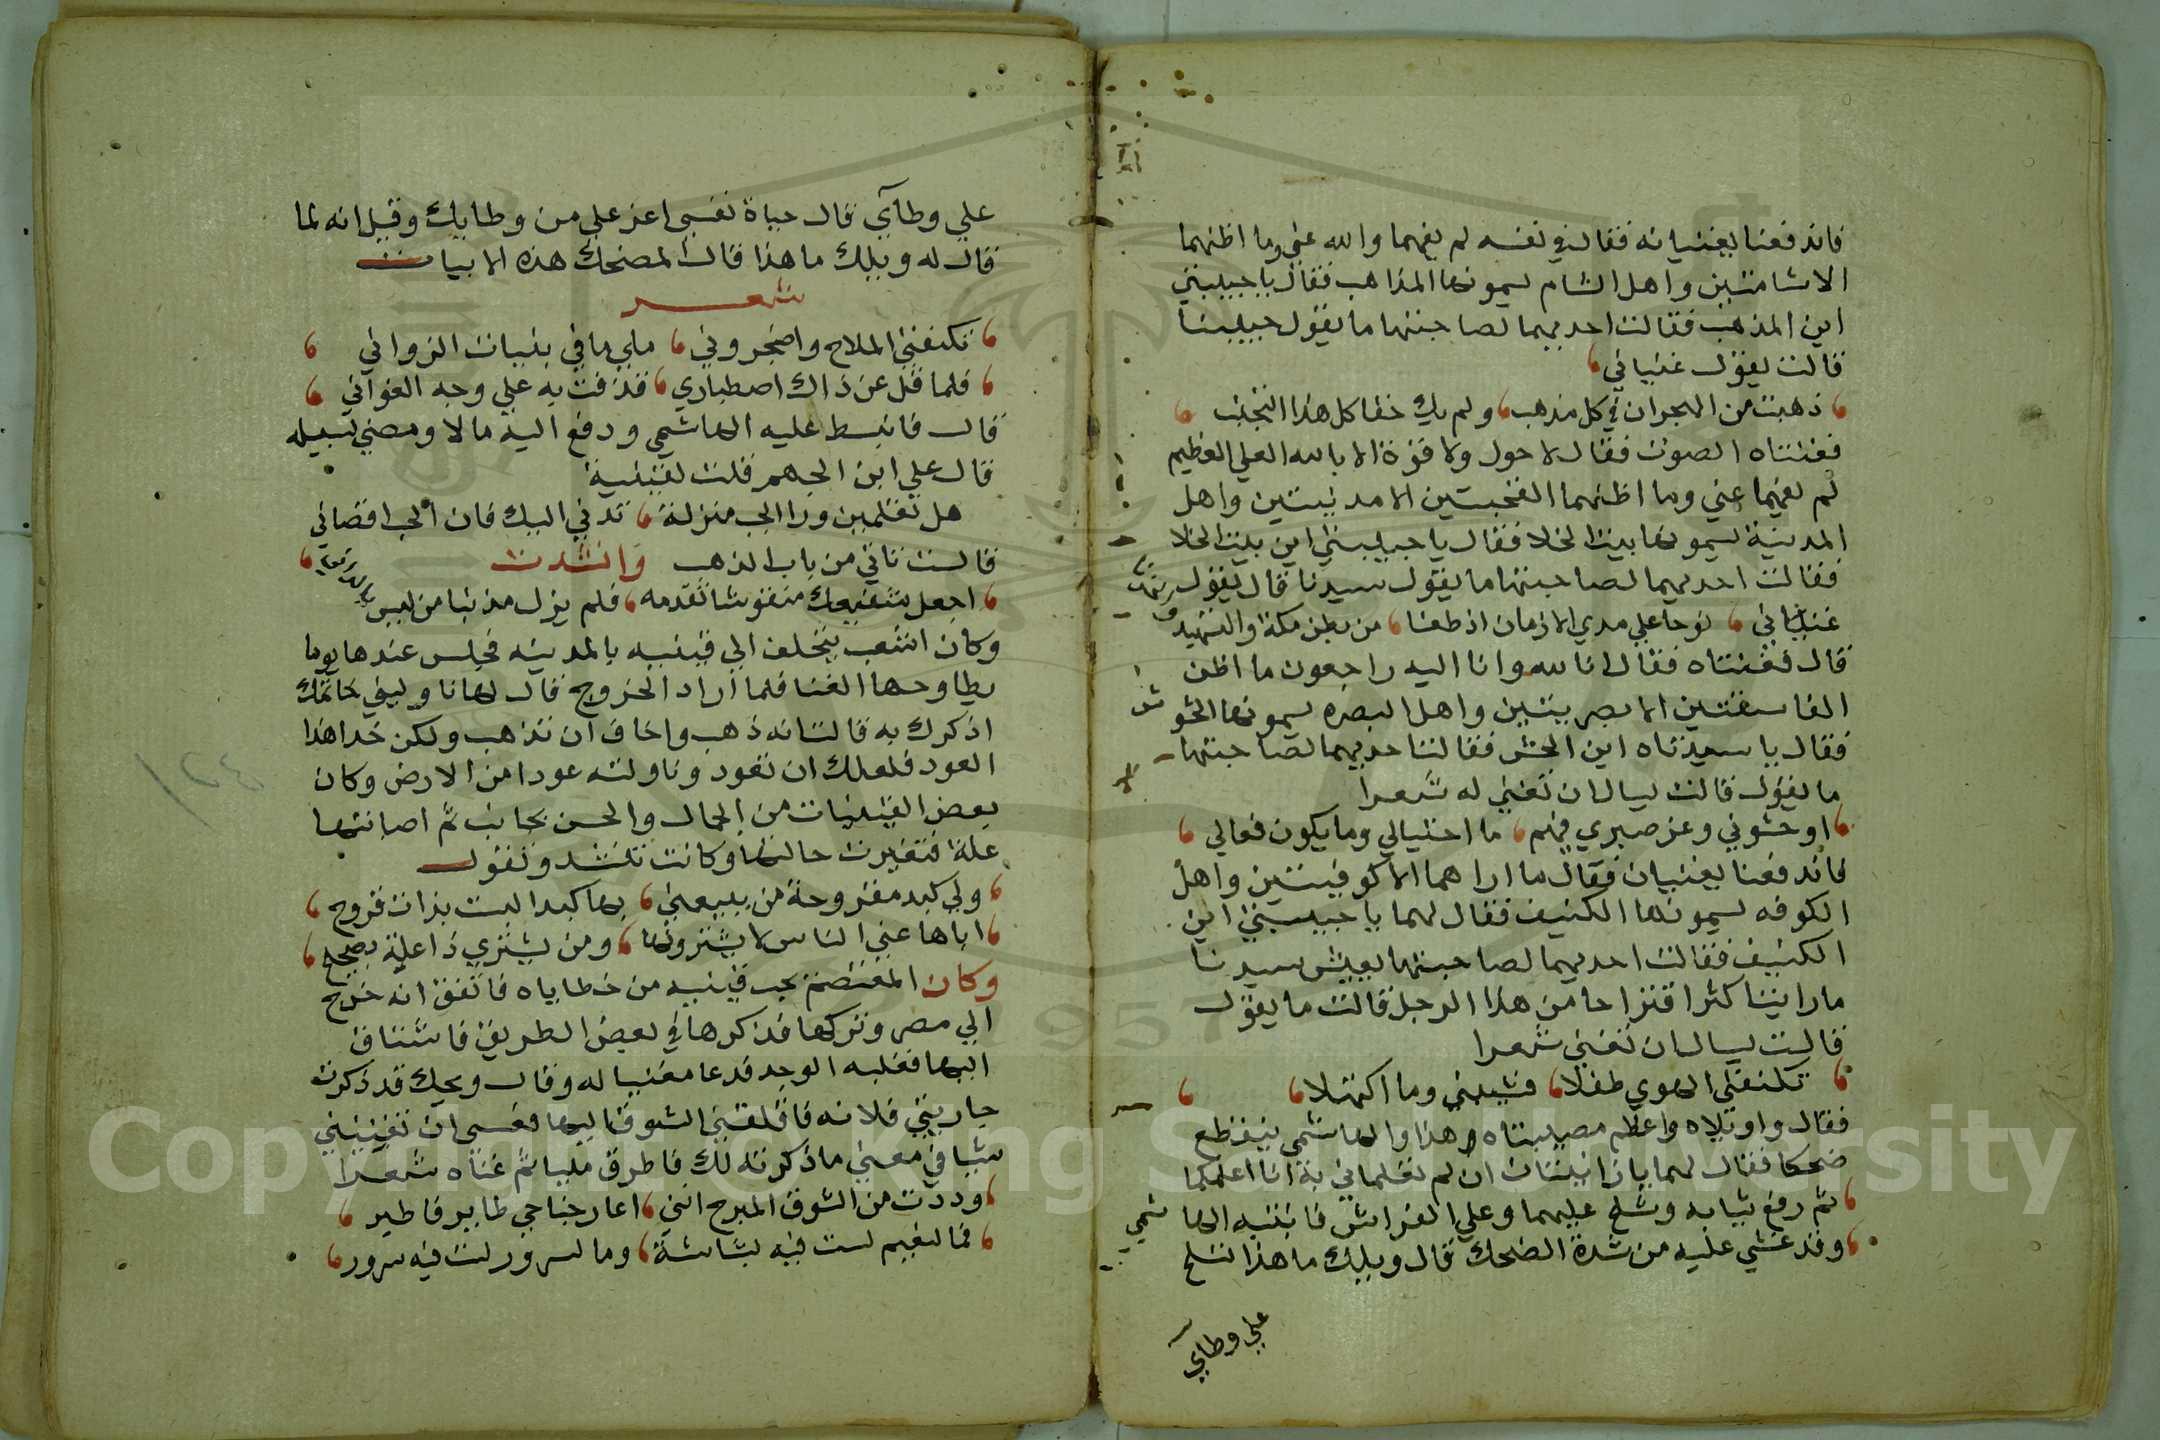 فاندفعنا يغنيانه فقال في نفسه لم يفهما والله عني وما اظنهما
الا شامتين واهل الشام يسمونها المذاهب فقال يا حبيبتي
اين المذهب فقالت احديهما لصاحبتها ما يقول حبيبنا
قالت يقول غنياني
ذهبت من الهجران في كل مذهب ولم يك حقا كل هذا التجنب
فغنتاه الصوت فقال لا حول ولا قوة الا بالله العلي العظيم
لم يفهما عني وما اظنهما القحبتين الا مدنيتين واهل
المدينة يسمونها بيت الخلا فقال يا حبيبتي اين بيت الخلا
فقالت احديهما لصاحبتها ما يقول سيدنا قال يقول
غنياني نوحا علي مدي الازمان اذ طعنا من بطن مكة والتسهيد
قال فغنتاه فقال انا لله وانا اليه راجعون ما اظن
الفاسقتين الا بصريتين واهل البصره يسمونها الحشوش
فقال يا سيدتاه اين الحش فقالت احديهما لصاحبتها
ما يقول قالت يسال ان نغني له شعرا
اوحشوني وعز صبري فيهم ما احتيالي وما يكون فعالي
فاندفعنا يغنيان فقال ما اراهما الا كوفيتين واهل
الكوفه يسمونها الكنيف فقال لهما يا حبيبتي اين
الكنيف فقالت احديهما لصاحبتها يعيش سيدنا
ما راينا اكثر اقتراحا من هذا الرجل قالت ما يقول
قالت يسال ان نغني شعرا
تكنفني الهوي طفلا فشيبني وما اكتهلا
فقال واويلاه واعظم مصيبتاه هذا والهاشمي يتقطع
ضحكا فقال لهما يا زانيتان ان لم تعلماني به انا اعلمكما
ثم رفع ثيابه وسلح عليهما وعلي الفراش فانتبه الهاشمي
وقد غشي عليه من شدة الضحك قال ويلك ما هذا تسلح
علي وطآي
علي وطآي قال حياة نفسي اعز علي من وطايك وقيل انه لما
قال له ويلك ما هذا قال المضحك هذه الابيات
شعر
تكنفني الملاح واضجروني علي ما في بنيات الزواني
فلما قل عن ذاك اصطباري قذفت به علي وجه الغواني
قال فانبسط عليه الهاشمي ودفع اليه مالا ومضي لسبيله
قال علي ابن الجهم قلت لقينية
هل تعلمين ورا الحب منزلة تدني اليك فان الحب اقصاني
قالت تاتي من باب الذهب وانشدت
اجعل شفيعك منقوشا تقدمه فلم يزل مدنيا من ليس بالداني
وكان اشعب يتخلف الي قينيه بالمدينه فجلس عندها يوما
يطاوحها الغنا فلما اراد الخروج قال لها ناوليني خاتمك
اذكرك به قالت انه ذهب واخاف ان تذهب ولكن خد هذا
العود فلعلك ان تعود وناولته عودا من الارض وكان
بعض القينيات من الجمال والحسن بجانب ثم اصابتها
علة فتغيرت حالتها وكانت تنشد وتقول
ولي كبد مقروحة من يبيعني بها كبدا ليست بذات قروح
اباها عني الناس لا يشترونها ومن يشتري ذا علية بصحيح
وكان المعتصم يحب قينيه من حظاياه فاتفق انه خرج
الي مصر وتركها فذكرها في بعض الطريق فاشتاق
اليها فغلبه الوجد فدعا مغنيا له وقال ويحك قد ذكرت
جاريتي فلانه فاقلقني الشوق اليها فعسى ان تغنيني
شيا في معني ما ذكرته لك فاطرق مليا ثم غناه شعرا
وددت من الشوق المبرح انني اعار جناحي طاير فاطير
فما لنعيم لست فيه بشاشة وما لسرور لست فيه سرور